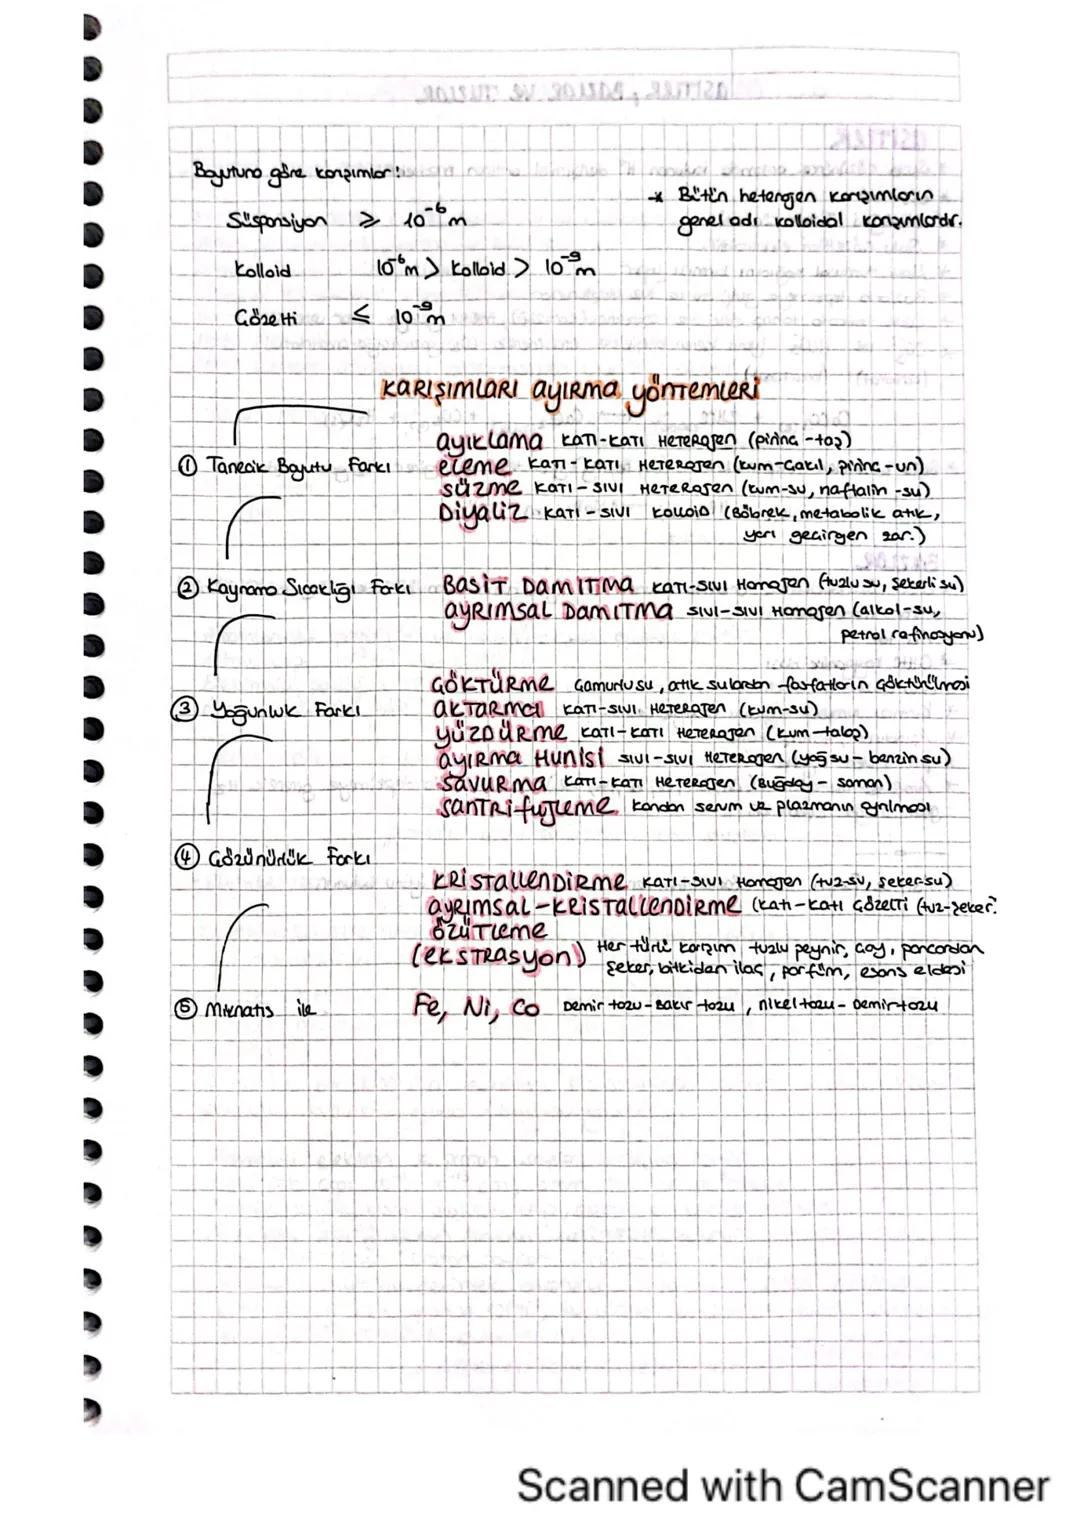 Boyutuna göre karışımlar:
* Bütün heterojen karışımların
genel adı kolloidal karışımlardır.
Süsponsiyon ≥ 10⁻⁶ m
Kolloid 10⁻⁶m > kolloid > 10⁻⁹m
Çözelti ≤ 10⁻⁹m
KARIŞIMLARI AYIRMA YÖNTEMLERİ
① Tanecik Boyutu Farkı
Ayıklama Katı-Katı Heterojen (pirinç-taş)
Eleme Katı-Katı Heterojen (kum-çakıl, pirinç-un)
Süzme Katı-Sıvı Heterojen (kum-su, naftalin-su)
Diyaliz Katı-Sıvı Kolloid (Böbrek, metabolik atık,
yarı geçirgen zar.)
② Kaynama Sıcaklığı Farkı
Basit Damıtma Katı-Sıvı Homojen (tuzlu su, şekerli su)
Ayrımsal Damıtma Sıvı-Sıvı Homojen (alkol-su,
petrol rafinasyonu)
③ Yoğunluk Farkı
Çöktürme Çamurlu su, atık sulardan fosfatların çöktürülmesi
Aktarma Katı-Sıvı Heterojen (kum-su)
Yüzdürme Katı-Katı Heterojen (kum-talaş)
Ayırma Hunisi Sıvı-Sıvı Heterojen (yağ su - benzin su)
Savurma Katı-Katı Heterojen (Buğday - saman)
Santrifujleme Kandan serum ve plazmanın ayrılması
④ Çözünürlük Farkı
Kristallendirme Katı-Sıvı Homojen (tuz-su, şeker-su)
Ayrımsal-Kristallendirme (Katı-Katı Çözelti (tuz-şeker)
Özütleme
(Ekstrasyon) Her türlü karışım tuzlu peynir, çay, pancardan
şeker, bitkiden ilaç, parfüm, esans eldesi
⑤ Mıknatıs ile
Fe, Ni, Co Demir tozu-Bakır tozu, nikel tozu-Demir tozu
Scanned with CamScanner